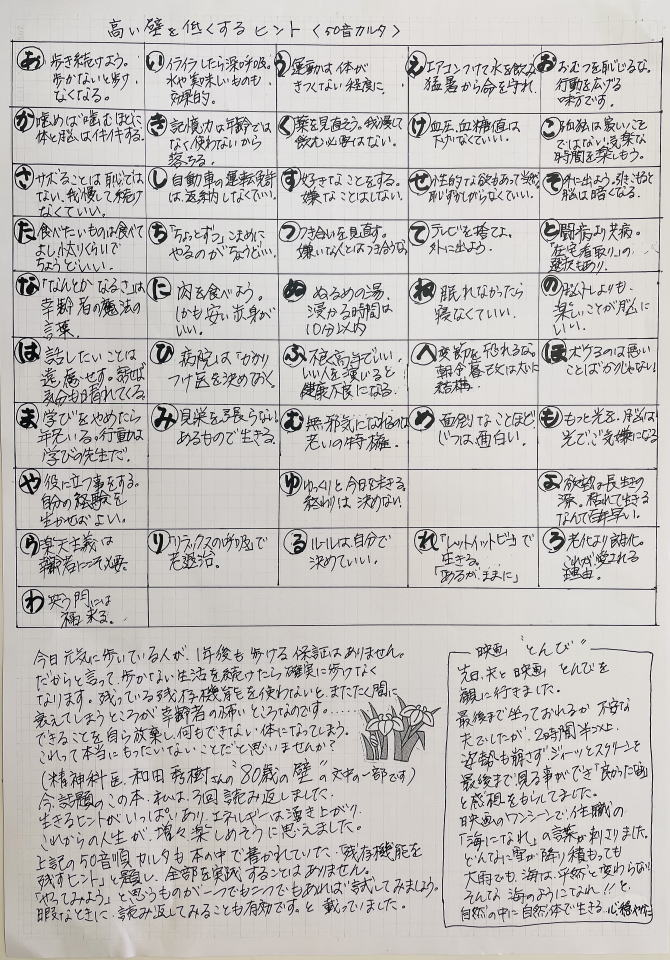 高い壁を低くするヒント〈50音カルタ〉
あ 歩き続けよう。
歩かないと歩け
なくなる。
い イライラしたら深呼吸。
水や美味しいものも
効果的。
う 運動は体が
きつくない程度に。
え エアコンつけて水を飲み
猛暑から命を守れ
お おむつを恥じるな。
行動を広げる
味方です。
か 噛めば噛むほどに
体と脳はイキイキする。
き 記憶力は年齢では
なく使わないから
落ちる。
く 薬を見直そう。我慢して
飲む必要はない。
け 血圧、血糖値は
下げなくていい。
こ 孤独は寂しいこと
ではない。気楽な
時間を楽しもう。
さ サボることは恥では
ない。我慢して続け
なくていい。
し 自動車の運転免許
は、返納しなくていい。
す 好きなことをする。
嫌なことはしない。
せ 性的な欲もあって当然
恥ずかしがらなくていい。
そ 外に出よう。引きこもると
脳は暗くなる。
た 食べたいものは食べて
よし小太りくらいで
ちょうどいい。
ち 「ちょっとずつ」こまめに
やるのがちょうどいい。
つ つき合いを見直す。
嫌いな人とはつき合うな
て テレビを捨てよ。
外に出よう。
と 闘病より共病。
「在宅看取り」の
選択もあり。
な 「なんとかなるさ」は
幸齢者の魔法の
言葉。
に 肉を食べよう。
しかも安い赤身が
いい。
ぬ ぬるめの湯、
浸かる時間は
10分以内
ね 眠れなかったら
寝なくていい。
の 脳トレよりも、
楽しいことが脳に
いい。
は 話したいことは
遠慮せず。話せば
気分も晴れてくる
ひ 病院は「かかり
つけ医を決めておく
ふ 不良高年でいい。
いい人を演じると
健康不良になる。
へ 変節を恐れるな。
朝令暮改は大いに
結構。
ほ ボケるのは悪い
ことばかりじゃない
ま 学びをやめたら
年老いる。行動は
学びの先生だ。
み 見栄を張らない。
あるもので生きる。
む 無邪気になれるのは
老いの特権。
め 面倒なことほど、
じつは面白い。
も もっと光を。脳は
光でご気嫌になる
や 役に立つ事をする。
自分の経験を
生かせばよい。
ゆ ゆっくりと今日を生きる。
終わりは決めない
よ 欲望は長生きの
源。枯れて生きる
なんて百年早い。
ら 楽天主義は
幸齢者にこそ必要
り リラックスの呼吸で
老退治。
る ルールは自分で
決めていい。
れ 「レットイットビー」で
生きる。
「あるがままに」
ろ 老化より朗化。
これが愛される
理由。
わ 笑う門には
福来る。
今日元気に歩いている人が、1年後も歩ける保証はありません。
だからと言って、歩かない生活を続けたら確実に歩けなく
なります。残っている残存機能を使わないと、またたく間に
衰えてしまうところが幸齢者の怖いところなのです。……
できることを自ら放棄し何もできない体になってしまう。
これって本当にもったいないことだと思いませんか?
(精神科医 和田秀樹さんの"80歳の壁"の文中の一部です)
今話題のこの本、私は、3回読み返しました。
生きるヒントがいっぱいあり、エネルギーは湧き上がり、
これからの人生が、増々楽しめそうに思えました。
上記の50音順カルタも本の中で書かれていた「残存機能を
残すヒント」と題し、全部を実践することはありません。
「やってみよう」と思うものが一つでも二つでもあれば試してみましょう。
暇なときに、読み返してみることも有効です。と載っていました。
映画"とんび"
先日、夫と映画とんびを
観に行きました。
最後まで坐っておれるか不安な
夫でしたが、2時間半以上、
姿勢も崩さずジィーッとスクリーンを
最後まで見る事ができ「良かった映画」
と感想をもらしてました。
映画のワンシーンで、住職の
「海になれ」の言葉が刺さりました。
どんなに雪が降り積もっても
大雨でも、海は、平然と変わらない
そんな海のようになれ!!と
自然の中に自然体で生きる